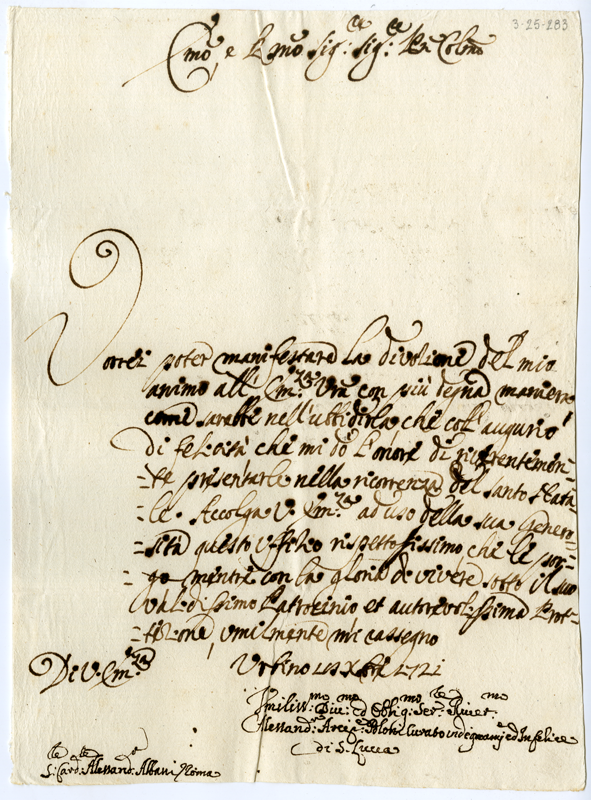 3-25-283
Em̃o, e R̃mo Sig:re Sig:re Pñ Colmo
Vorrei poter manifestare la divozione del mio
animo all' Em:za Vrã con più degna maniera
come sarebbe nell' ubbidirla, che coll' augurio
di felicità che mi dò l'onore di riverentemen-
-te presentarle nella ricorrenza del santo Nata-
-le. Accolga V. Em:za ad uso della sua Genero-
-sità questo Uffizio rispettosissimo che le por-
-go mentre con la gloria di vivere sotto il suo
validissimo Patrocinio et autorevolissima Prot-
-tezione, umilmente mi rassegno
Di V. Em:za Urbino Xbre 1721
Umiliss:mo Div:mo ed Obblig:mo Ser:re
Alessand:o Curato indegnamte ed Infelice
di S. Lucca
S:r Card:le Alessand:o Albani Roma